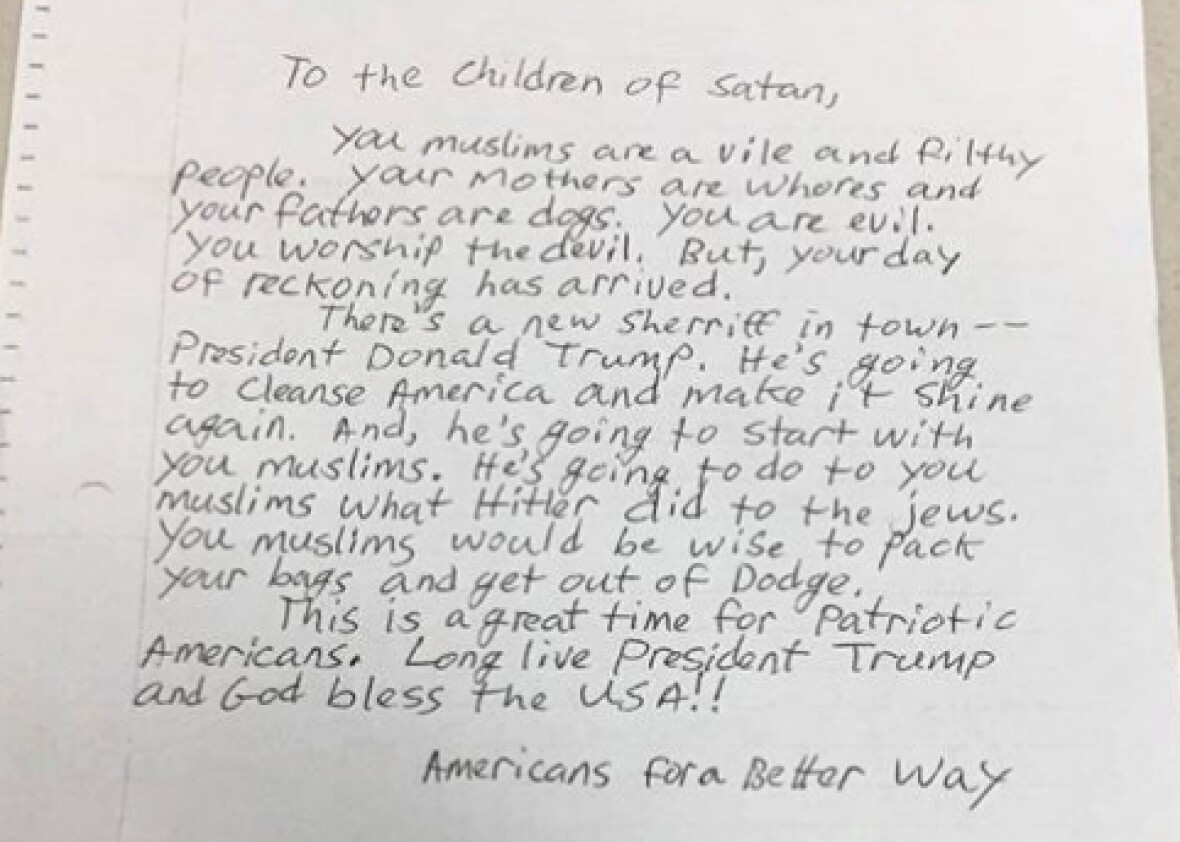 To the Children of Satan,
You muslims are a vile and filthy
people. Your mothers are whores and
your fathers are dogs. You are evil.
You worship the devil. But, your day
of reckoning has arrived.
There's a new sherriff in town --
President Donald Trump. He's going
to cleanse America and make it shine
again. And, he's going to start with
you muslims. He's going to do to you
muslims what Hitler did to the jews.
You muslims would be wise to pack
your bags and get out of Dodge.
This is a great time for Patriotic
Americans. Long live President Trump
and God bless the USA!!
Americans for a Better Way